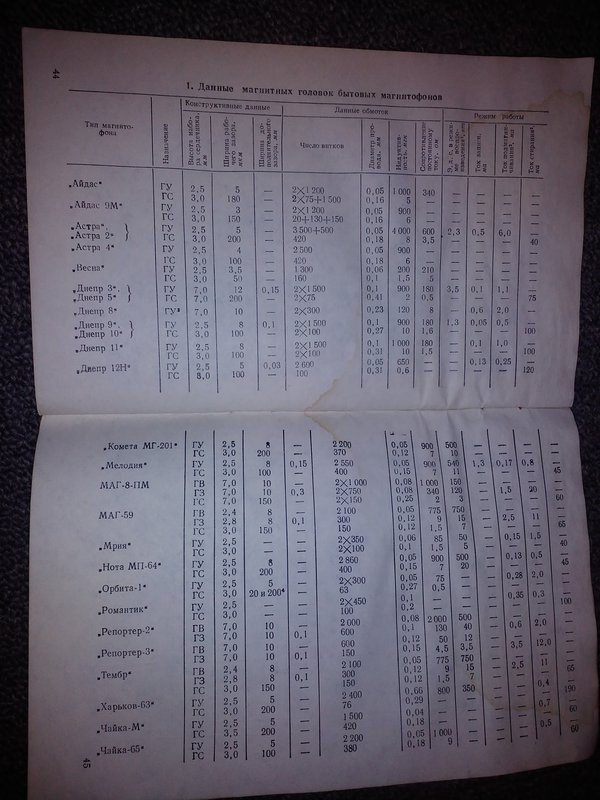 44
1. Данные магнитных головок бытовых магнитофонов
Тип магнито-фона | Назначение | Конструктивные данные | Данные обмоток | Режим работы
Высота набора сердечника, мм | Ширина рабочего зазора, мкм | Ширина дополнительного зазора, мм | Число витков | Диаметр провода, мм | Индуктивность, мгн | Сопротивление постоянному току, ом | Ток записи, ма | Ток подмагничивания, ма | Ток стирания, ма
„Айдас“ ГУ 2,5 5 — 2×1 200 0,05 1 000 340
ГС 3,0 180 — 2×75+1 500 0,16 5
„Айдас 9М“ ГУ 2,5 3 — 2×1 200 0,05 900 —
ГС 3,0 150 — 20+130+150 0,16 6 —
„Астра“, ГУ 2,5 5 — 3 500+500 0,05 4 000 600 2,3 0,5 6,0
„Астра 2“ ГС 3,0 200 — 420 0,18 8 3,5 — — — 40
„Астра 4“ ГУ 2,5 4 — 2 500 0,05 900 —
ГС 3,0 100 — 420 0,18 6 —
„Весна“ ГУ 2,5 3,5 — 1 300 0,06 200 210
ГС 3,0 50 — 160 0,1 1,5 5
„Днепр 3“, ГУ 7,0 12 0,15 2×1 500 0,1 900 180 3,5 0,1 1,1
„Днепр 5“ ГС 7,0 200 — 2×75 0,41 2 0,5 — — — 75
„Днепр 8“ ГУ³ 7,0 10 — 2×300 0,23 120 8 — 0,6 2,0
„Днепр 9“, ГУ 2,5 8 0,1 2×1 500 0,1 900 180 1,3 0,05 0,5
„Днепр 10“ ГС 3,0 100 — 2×100 0,27 10 1,6 — — — 100
„Днепр 11“ ГУ 2,5 8 — 2×1 500 0,1 1 000 180 — 0,1 1,0
ГС 3,0 100 — 2×100 0,31 10 1,5 — — — 100
„Днепр 12Н“ ГУ 2,5 5 0,03 2 600 0,05 650 — — 0,13 0,25
ГС 3,0 100 — 100 0,31 0,6 — — — — 120
„Комета МГ-201“ ГУ 2,5 8 — 2 200 0,05 900 500
ГС 3,0 200 — 370 0,12 7 10
„Мелодия“ ГУ 2,5 8 0,15 2 550 0,05 900 540 1,3 0,17 0,8
ГС 3,0 100 — 400 0,15 7 11 — — — 45
МАГ-8-IIМ ГВ 7,0 10 — 2×1 000 0,08 1 000 150
ГЗ 7,0 10 0,3 2×750 0,08 340 120 — 1,5 20
ГС 7,0 150 — 2×150 0,25 2 3 — — — 60
МАГ-59 ГВ 2,4 8 — 2 100 0,05 775 750
ГЗ 2,8 8 0,1 300 0,12 9 15 — 2,5 11
ГС 3,0 150 — 150 0,12 1,5 7 — — — 65
„Мрия“ ГУ 2,5 — — 2×350 0,06 85 50 — 0,15 1,5
ГС 3,0 — — 2×100 0,1 1,5 5 — — — 40
„Нота МП-64“ ГУ 2,5 8 — 2 860 0,05 900 500 — 0,13 0,5
ГС 3,0 200 — 400 0,15 7 20 — — — 45
„Орбита-1“ ГУ 2,5 5 — 2×300 0,05 75 — — 0,28 2,0
ГС 3,0 20 и 200⁴ — 63 0,27 0,5 —
„Романтик“ ГУ 2,5 — — 2×450 0,1 — — — 0,35 0,3
ГС 3,0 — — 100 0,2 — — — — — 100
„Репортер-2“ ГВ 7,0 10 — 2 000 0,08 2 000 500
ГЗ 7,0 10 0,1 600 0,1 130 40 — 0,6 2,0
„Репортер-3“ ГВ 7,0 10 — 600 0,12 50 12
ГЗ 7,0 10 0,1 150 0,15 4,5 3,5 — 3,5 12,0
„Тембр“ ГВ 2,4 8 — 2 100 0,05 775 750
ГЗ 2,8 8 0,1 300 0,12 9 15 — 2,5 11
ГС 3,0 150 — 150 0,12 1,5 7 — — — 65
„Харьков-63“ ГУ 2,5 5 — 2 400 0,06 800 350 — — 0,4
ГС 3,0 200 — 76 0,29 —
„Чайка-М“ ГУ 2,5 5 — 1 500 0,04 — — — — 0,7
ГС 3,5 200 — 420 0,18 — — — — — 60
„Чайка-65“ ГУ 2,5 5 — 2 200 0,05 1 000 — — — 0,5
ГС 3,0 100 — 380 0,18 9 — — — — 60
45